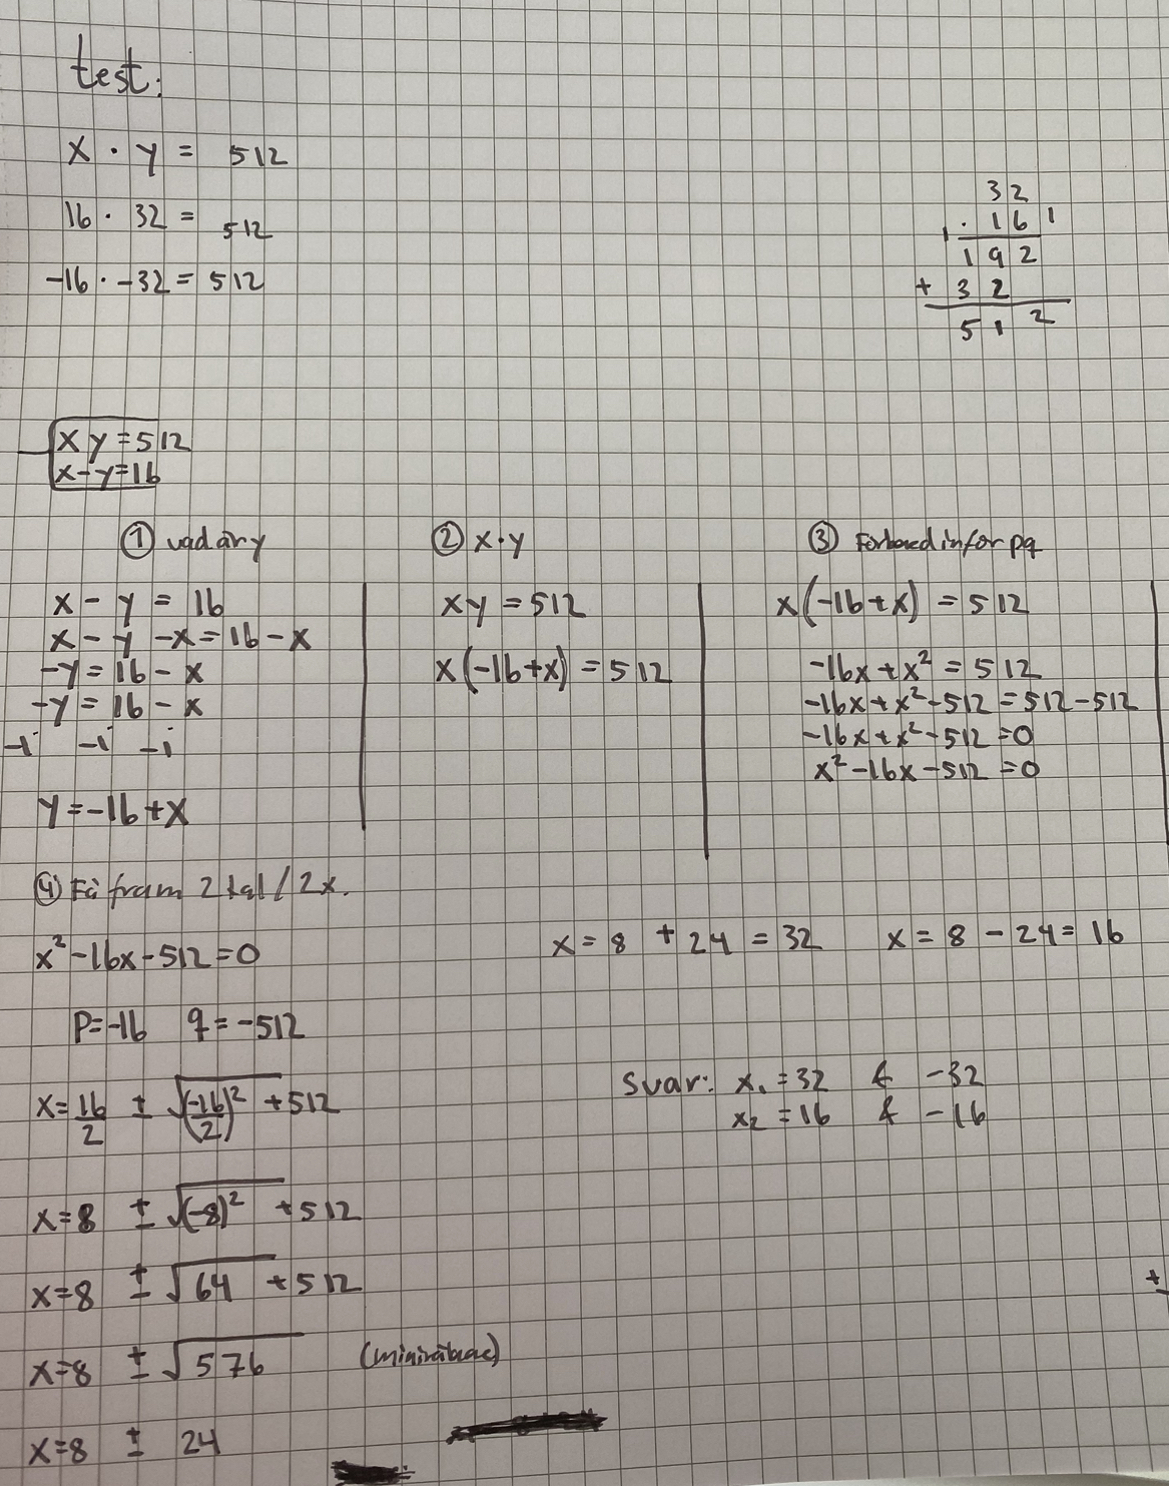 test:
x · y = 512
16 · 32 = 512
-16 · -32 = 512
32
1 · 16 1
192
+ 32
512
xy = 512
x-y=16
① vad är y
x - y = 16
x - y - x = 16 - x
-y = 16 - x
-y = 16 - x
-1 -1 -1
y = -16 + x
② x·y
xy = 512
x(-16+x) = 512
③ in för pq
x(-16+x) = 512
-16x + x² = 512
-16x + x² - 512 = 512 - 512
-16x + x² - 512 = 0
x² - 16x - 512 = 0
④ Få fram 2 tal / 2x.
x² - 16x - 512 = 0
P = -16 q = -512
x = 16/2 ± √(-16/2)² + 512
x = 8 ± √(-8)² + 512
x = 8 ± √64 + 512
x = 8 ± √576
x = 8 ± 24
x = 8 + 24 = 32 x = 8 - 24 = 16
Svar: x₁ = 32 & -32
x₂ = 16 & -16
+